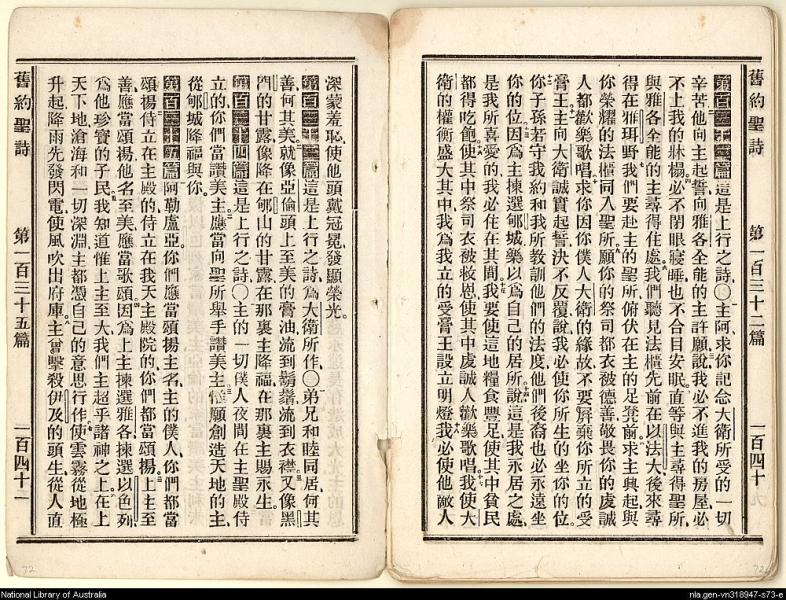 舊約聖詩 第一百三十二篇 一百四十
第一百三十二篇這是上行之詩〇主阿求你記念大衛所受的一切
辛苦他向主起誓向雅各全能的主許願說我必不進我的房屋必
不上我的牀榻必不閉眼寢睡也不合目安眠直等與主尋得聖所
與雅各全能的主尋得住處我們聽見法櫃先前在以法大後來尋
得在雅珥野我們要赴主的聖所俯伏在主的足凳前求主興起與
你榮耀的法櫃同入聖所願你的祭司都衣被德善敬畏你的虔誠
人都歡樂歌唱求你因你僕人大衛的緣故不要厭棄你所立的受
膏王主向大衛誠實起誓決不反覆說我必使你所生的坐你的位
你子孫若守我約和我所教訓他們的法度他們後裔也必永遠坐
你的位因爲主揀選郇城樂以爲自己的居所說這是我永居之處
是我所喜愛的我必住在其間我要使這地糧食豐足使其中貧民
都得吃飽使其中祭司衣被救恩使其中虔誠人歡樂歌唱我使大
衛的權衡盛大其中我爲我立的受膏王設立明燈我必使他敵人
深蒙羞恥使他頭戴冠冕發顯榮光
第一百三十三篇這是上行之詩爲大衛所作〇弟兄和睦同居何其
善何其美就像亞倫頭上至美的膏油流到鬍鬚流到衣襟又像黑
門的甘露像降在郇山的甘露在那裏主降福在那裏主賜永生
第一百三十四篇這是上行之詩〇主的一切僕人夜間在主聖殿侍
立的你們當讚美主應當向聖所舉手讚美主惟願創造天地的主
從郇城降福與你
第一百三十五篇阿勒盧亞你們應當頌揚主名主的僕人你們都當
頌揚侍立在主殿的侍立在我天主殿院的你們都當頌揚上主至
善應當頌揚他名至美應當歌頌因爲上主揀選雅各揀選以色列
爲他珍寶的子民我知道惟上主至大我們主超乎諸神之上在上
天下地滄海和一切深淵主都憑自己的意思行作使雲霧從地極
升起降雨先發閃電使風吹出府庫主曾擊殺伊及的頭生從人直
舊約聖詩 第一百三十五篇 一百四十一
72
National Library of Australia
nla.gen-vn318947-s73-e